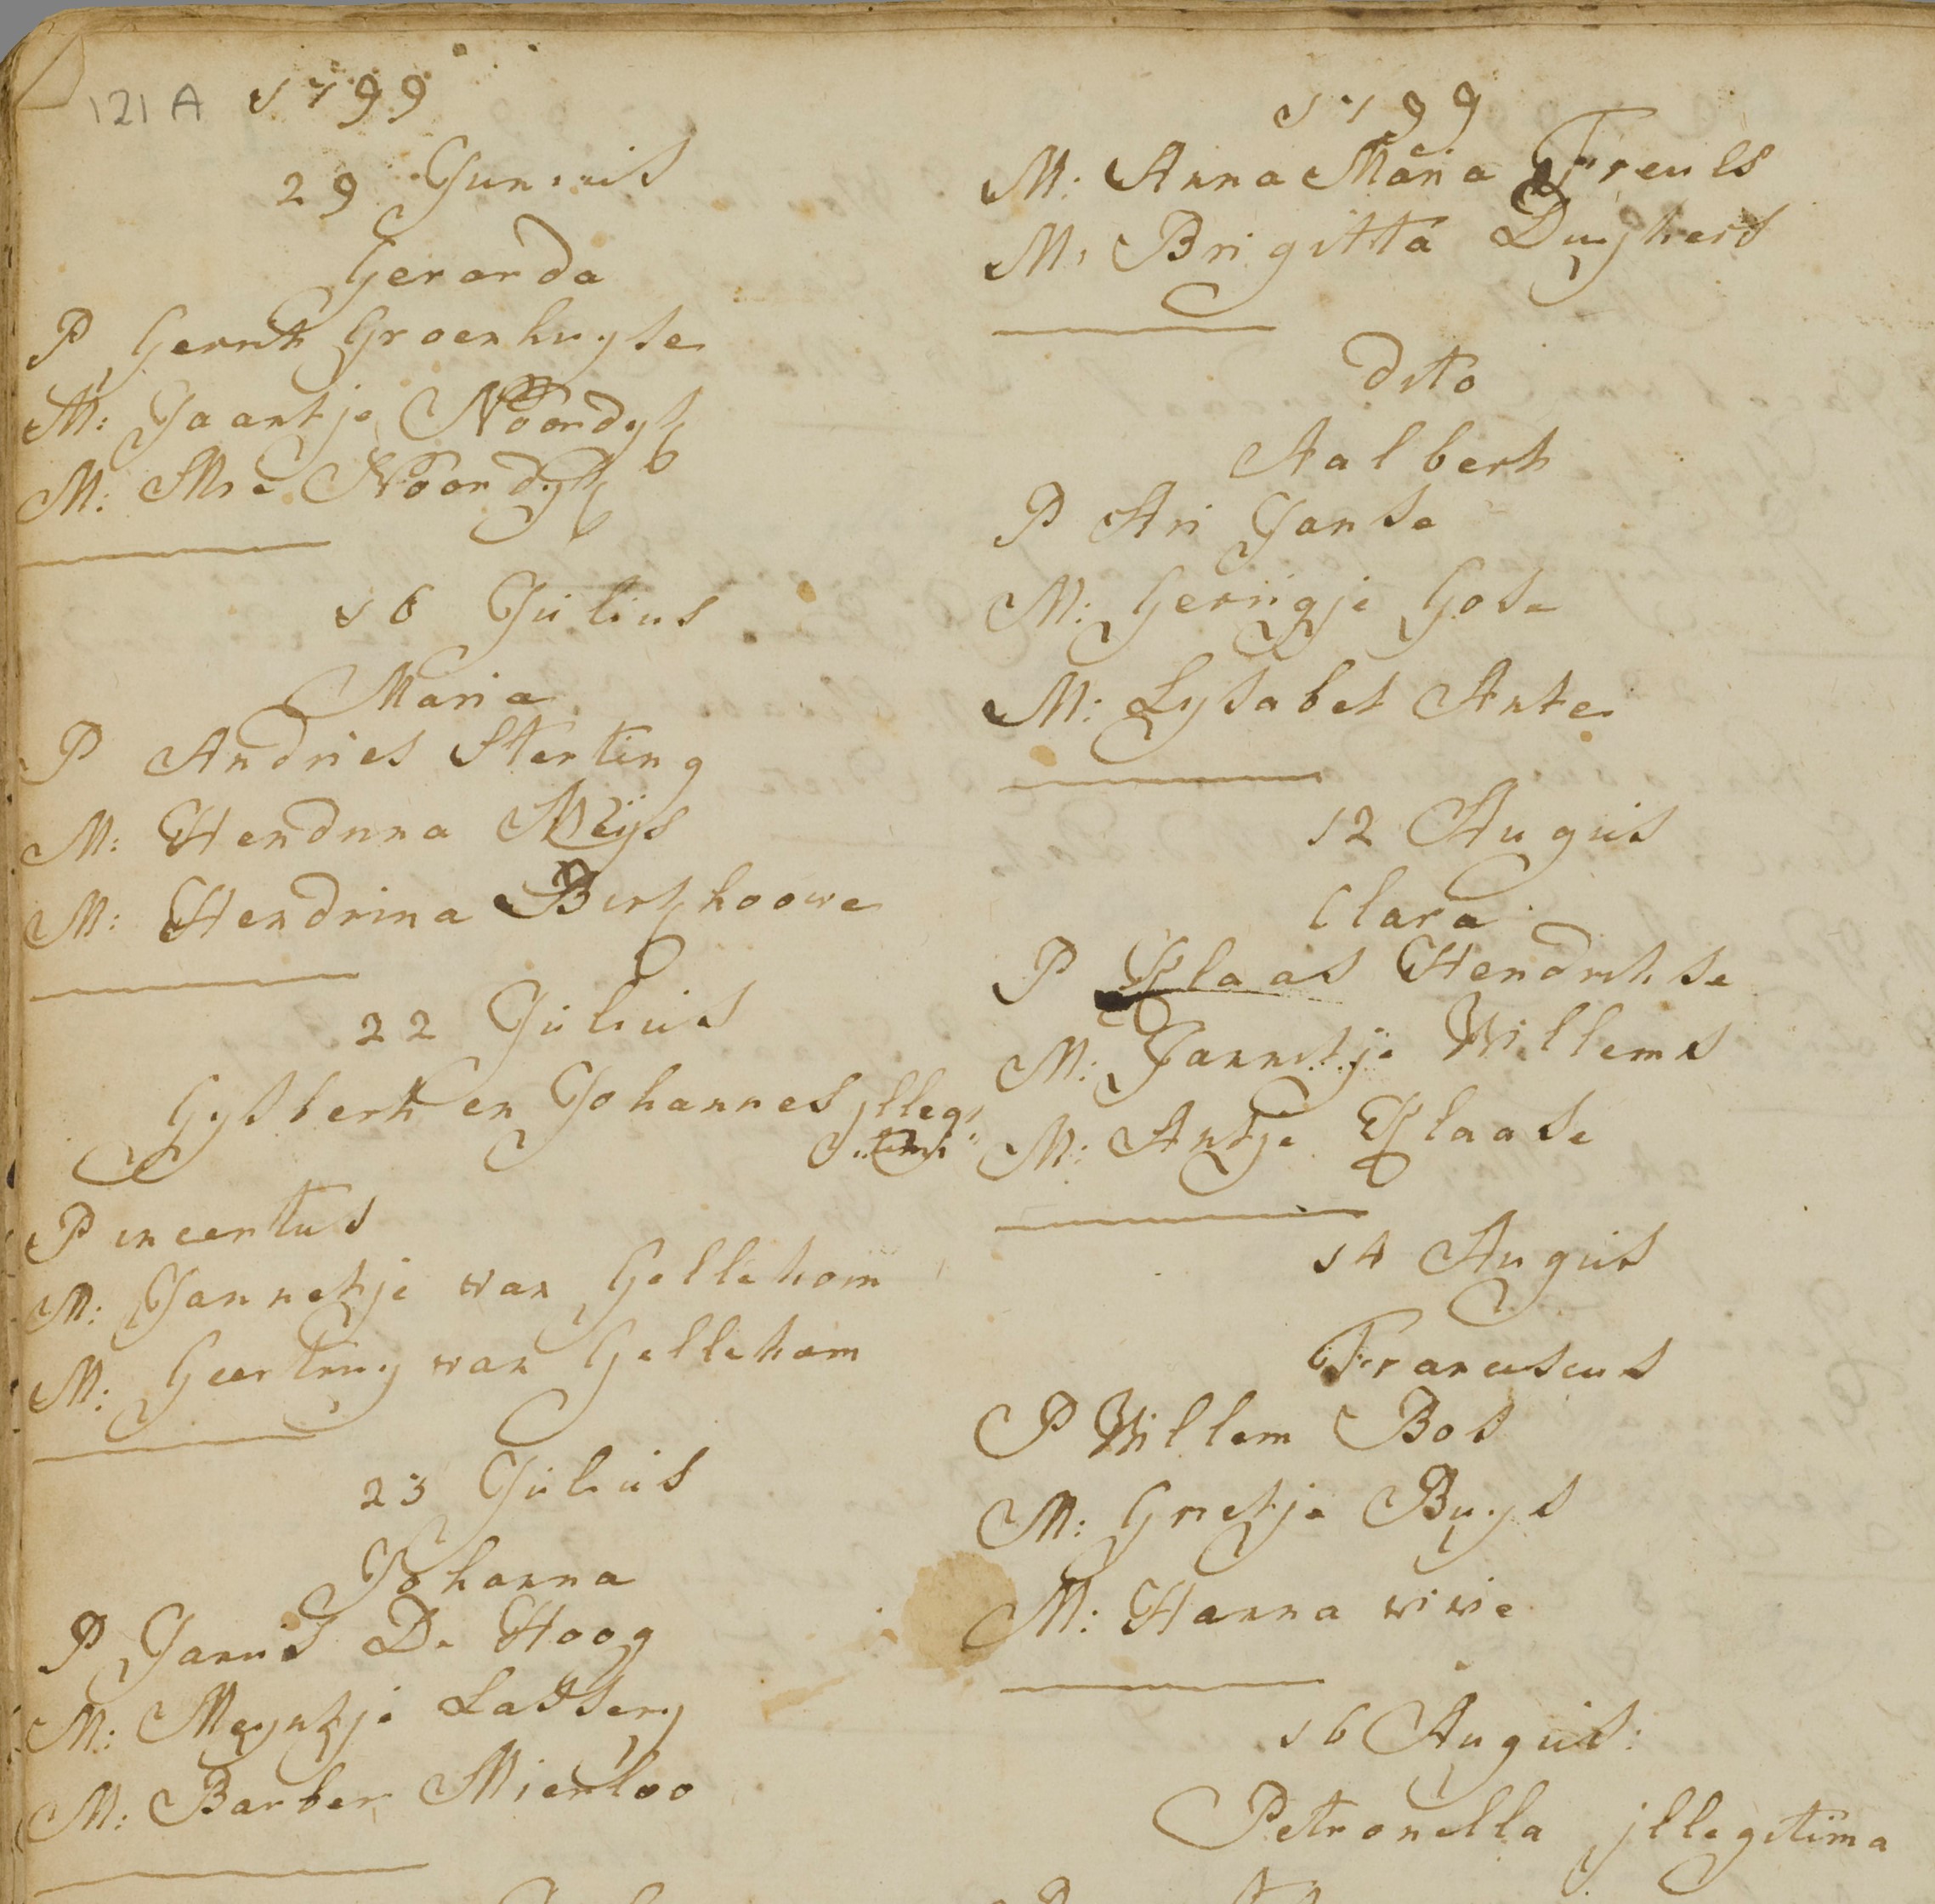 121 A 1799
29 Junius
Gerarda
P Gerrit Groenhuyse
M: Jaantje Noordyk
M: Noordyk
16 Julius
Maria
P Andries Sterting
M: Hendrina Meijs
M: Hendrina Berkhoowe
22 Julius
Gysbert en Johannes jllegi
timi
P incertus
M: Jannetje van Gellekom
M: Geertruy van Gellekom
23 Julius
Johanna
P Jannis De Hoog
M: Meyntje Lassery
M: Barber Mierloo
1799
M: Anna Maria Freules
M: Brigitta Duykers
dito
Aalbert
P Ari Janse
M: Gerrigje Gose
M: Lysabet Ante
12 Augus
Clara
P Klaas Hendrikse
M: Jannetje Willems
M: Antje Klaase
14 Augus
Franciscus
P Willem Bos
M: Grietje Buys
M: Hanna vivie
16 Augus:
Petronella jllegitima